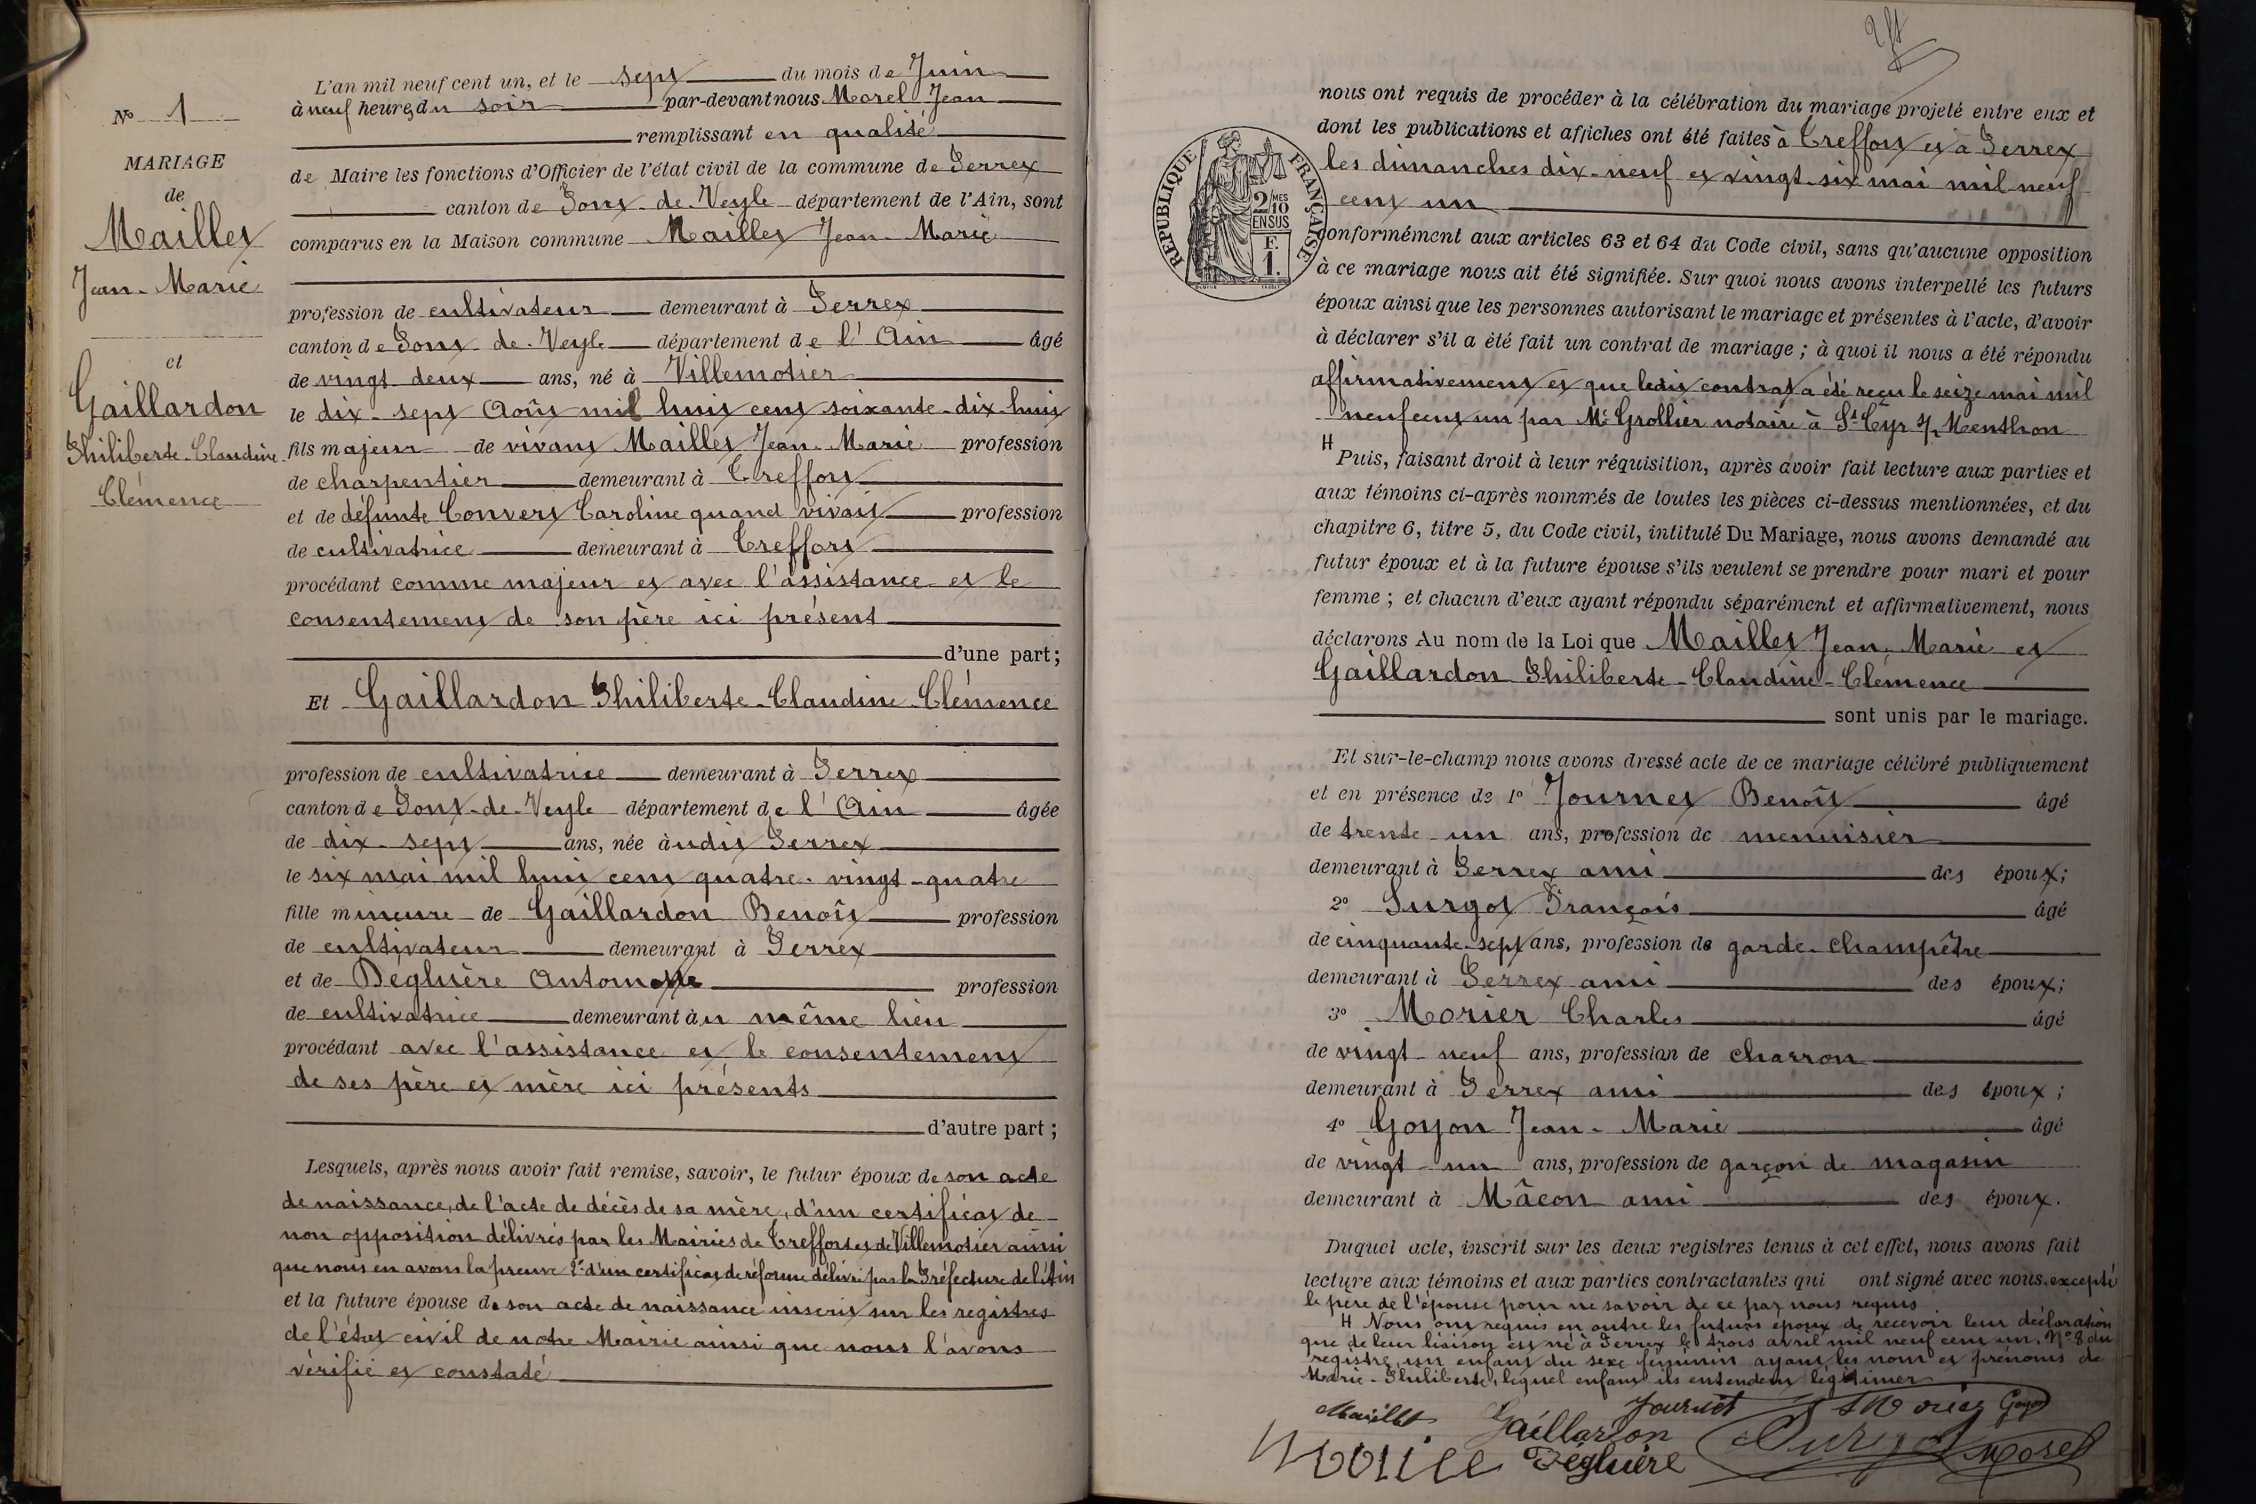 N° 1
MARIAGE
de
Maillet
Jean-Marie
et
Gaillardon
Philiberte-Claudine
Clémence
L'an mil neuf cent un, et le sept du mois de Juin
à neuf heures du soir par-devant nous Morel Jean
remplissant en qualité
de Maire les fonctions d'Officier de l'état civil de la commune de Perrex
canton de Pont-de-Veyle département de l'Ain, sont
comparus en la Maison commune Maillet Jean-Marie
profession de cultivateur demeurant à Perrex
canton de Pont-de-Veyle département de l'Ain âgé
de vingt deux ans, né à Villemotier
le dix-sept Août mil huit cent soixante-dix-huit
fils majeur de vivant Maillet Jean-Marie profession
de charpentier demeurant à Treffort
et de défunte Convert Caroline quand vivait profession
de cultivatrice demeurant à Treffort
procédant comme majeur et avec l'assistance et le
consentement de son père ici présent
d'une part;
Et Gaillardon Philiberte-Claudine-Clémence
profession de cultivatrice demeurant à Perrex
canton de Pont-de-Veyle département de l'Ain âgée
de dix-sept ans, née àudit Perrex
le six mai mil huit cent quatre-vingt-quatre
fille mineure de Gaillardon Benoît profession
de cultivateur demeurant à Perrex
et de Degluère profession
de cultivatrice demeurant àu même lieu
procédant avec l'assistance et le consentement
de ses père et mère ici présents
d'autre part;
Lesquels, après nous avoir fait remise, savoir, le futur époux de son acte
de naissance, de l'acte de décès de sa mère, d'un certificat de
non opposition délivrés par les Mairies de Treffort et de Villemotier ainsi
que nous en avons la preuve 2° d'un certificat de réforme délivré par la Préfecture de l'Ain
et la future épouse de son acte de naissance inscrit sur les registres
de l'état civil de notre Mairie ainsi que nous l'avons
vérifié et constaté
nous ont requis de procéder à la célébration du mariage projeté entre eux et
dont les publications et affiches ont été faites à Treffort et à Perrex
les dimanches dix-neuf et vingt-six mai mil neuf
cent un
RÉPUBLIQUE FRANÇAISE
2/10 MES
EN SUS
F.
1.
conformément aux articles 63 et 64 du Code civil, sans qu'aucune opposition
à ce mariage nous ait été signifiée. Sur quoi nous avons interpellé les futurs
époux ainsi que les personnes autorisant le mariage et présentes à l'acte, d'avoir
à déclarer s'il a été fait un contrat de mariage; à quoi il nous a été répondu
affirmativement et que ledit contrat a été reçu le seize mai mil
neuf cent un par Me Grollier notaire à St Cyr s/ Menthon
H
Puis, faisant droit à leur réquisition, après avoir fait lecture aux parties et
aux témoins ci-après nommés de toutes les pièces ci-dessus mentionnées, et du
chapitre 6, titre 5, du Code civil, intitulé Du Mariage, nous avons demandé au
futur époux et à la future épouse s'ils veulent se prendre pour mari et pour
femme; et chacun d'eux ayant répondu séparément et affirmativement, nous
déclarons Au nom de la Loi que Maillet Jean-Marie et
Gaillardon Philiberte-Claudine-Clémence
sont unis par le mariage.
Et sur-le-champ nous avons dressé acte de ce mariage célébré publiquement
et en présence de 1° Journet Benoît âgé
de trente-un ans, profession de menuisier
demeurant à Perrex ami des époux;
2° Surgot François âgé
de cinquante-sept ans, profession de garde-champêtre
demeurant à Perrex ami des époux;
3° Morier Charles âgé
de vingt-neuf ans, profession de charron
demeurant à Perrex ami des époux;
4° Goyon Jean-Marie âgé
de vingt-un ans, profession de garçon de magasin
demeurant à Mâcon ami des époux.
Duquel acte, inscrit sur les deux registres tenus à cet effet, nous avons fait
lecture aux témoins et aux parties contractantes qui ont signé avec nous, excepté
le père de l'épouse pour ne savoir de ce par nous requis.
H Nous ont requis en outre les futurs époux de recevoir leur déclaration
que de leur liaison est né à Perrex le trois avril mil neuf cent un, N° 8 du
registre, un enfant du sexe féminin ayant les nom et prénoms de
Marie-Philiberte, lequel enfant ils entendent légitimer
Maillet Gaillardon Journet Morier Goyon
Degluère Surgot Morel